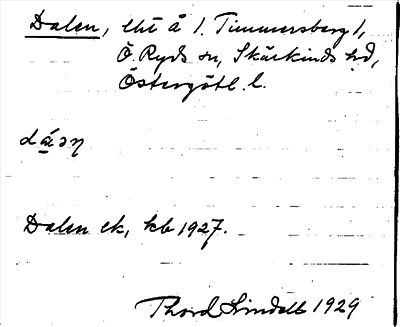 Dalen, lht å 1. Timmersberg 1,
Ö. Ryds sn, Skärkinds hd,
Östergötl. l.
Dalen ek, kb 1927.
Thord Lindell 1929